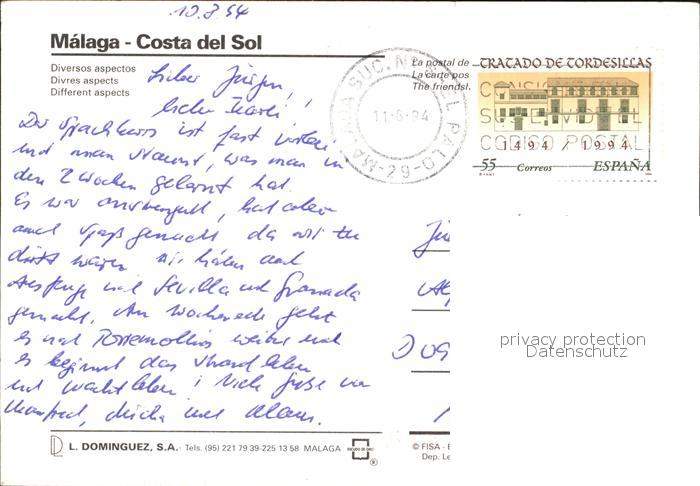 10.8.94
Málaga - Costa del Sol
Diversos aspectos
Divres aspects
Different aspects
La postal de
La carte pos
The friendsl.
TRATADO DE TORDESILLAS
1494 / 1994
55 Correos ESPAÑA
MALAGA SUC. N. EL PALO -29-
11-8-94
CONSI
CODIGO POSTAL
Lieber Jürgen,
lieber !
Der Sprachkurs ist fast vorbei
und man staunt, was man in
den 2 Wochen gelernt hat.
Es war anstrengend, hat aber
auch Spaß gemacht da wir zu
dritt waren. Wir haben auch
Ausflüge nach Sevilla und Granada
gemacht. Am Wochenende geht
es nach Torremolinos weiter und
es beginnt das Strandleben
und Nachtleben! Viele Grüße von
Manfred, und
Jü
D 09
privacy protection
Datenschutz
L. DOMINGUEZ, S.A. - Tels. (95) 221 79 39-225 13 58 MALAGA
ESCUDO DE ORO
®
© FISA - E
Dep. Le